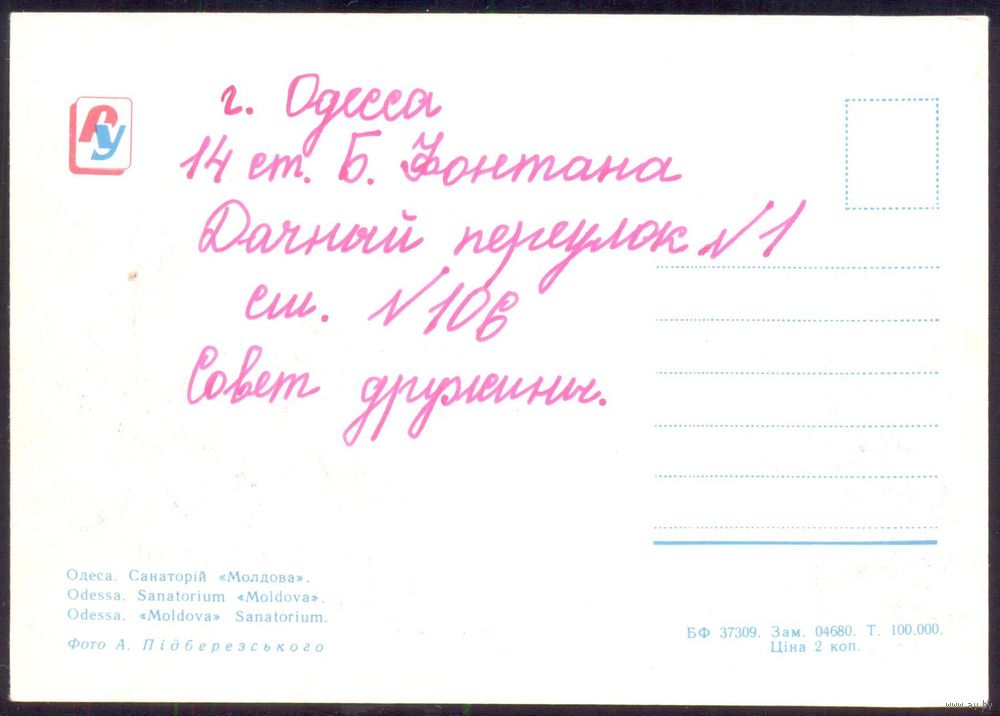 РУ
г. Одесса
14 ст. Б. Фонтана
Дачный переулок №1
сш. №106
Совет дружины.
Одеса. Санаторій «Молдова».
Odessa. Sanatorium «Moldova».
Odessa. «Moldova» Sanatorium.
Фото А. Підберезського
БФ 37309. Зам. 04680. Т. 100.000.
Ціна 2 коп.
www.ay.by